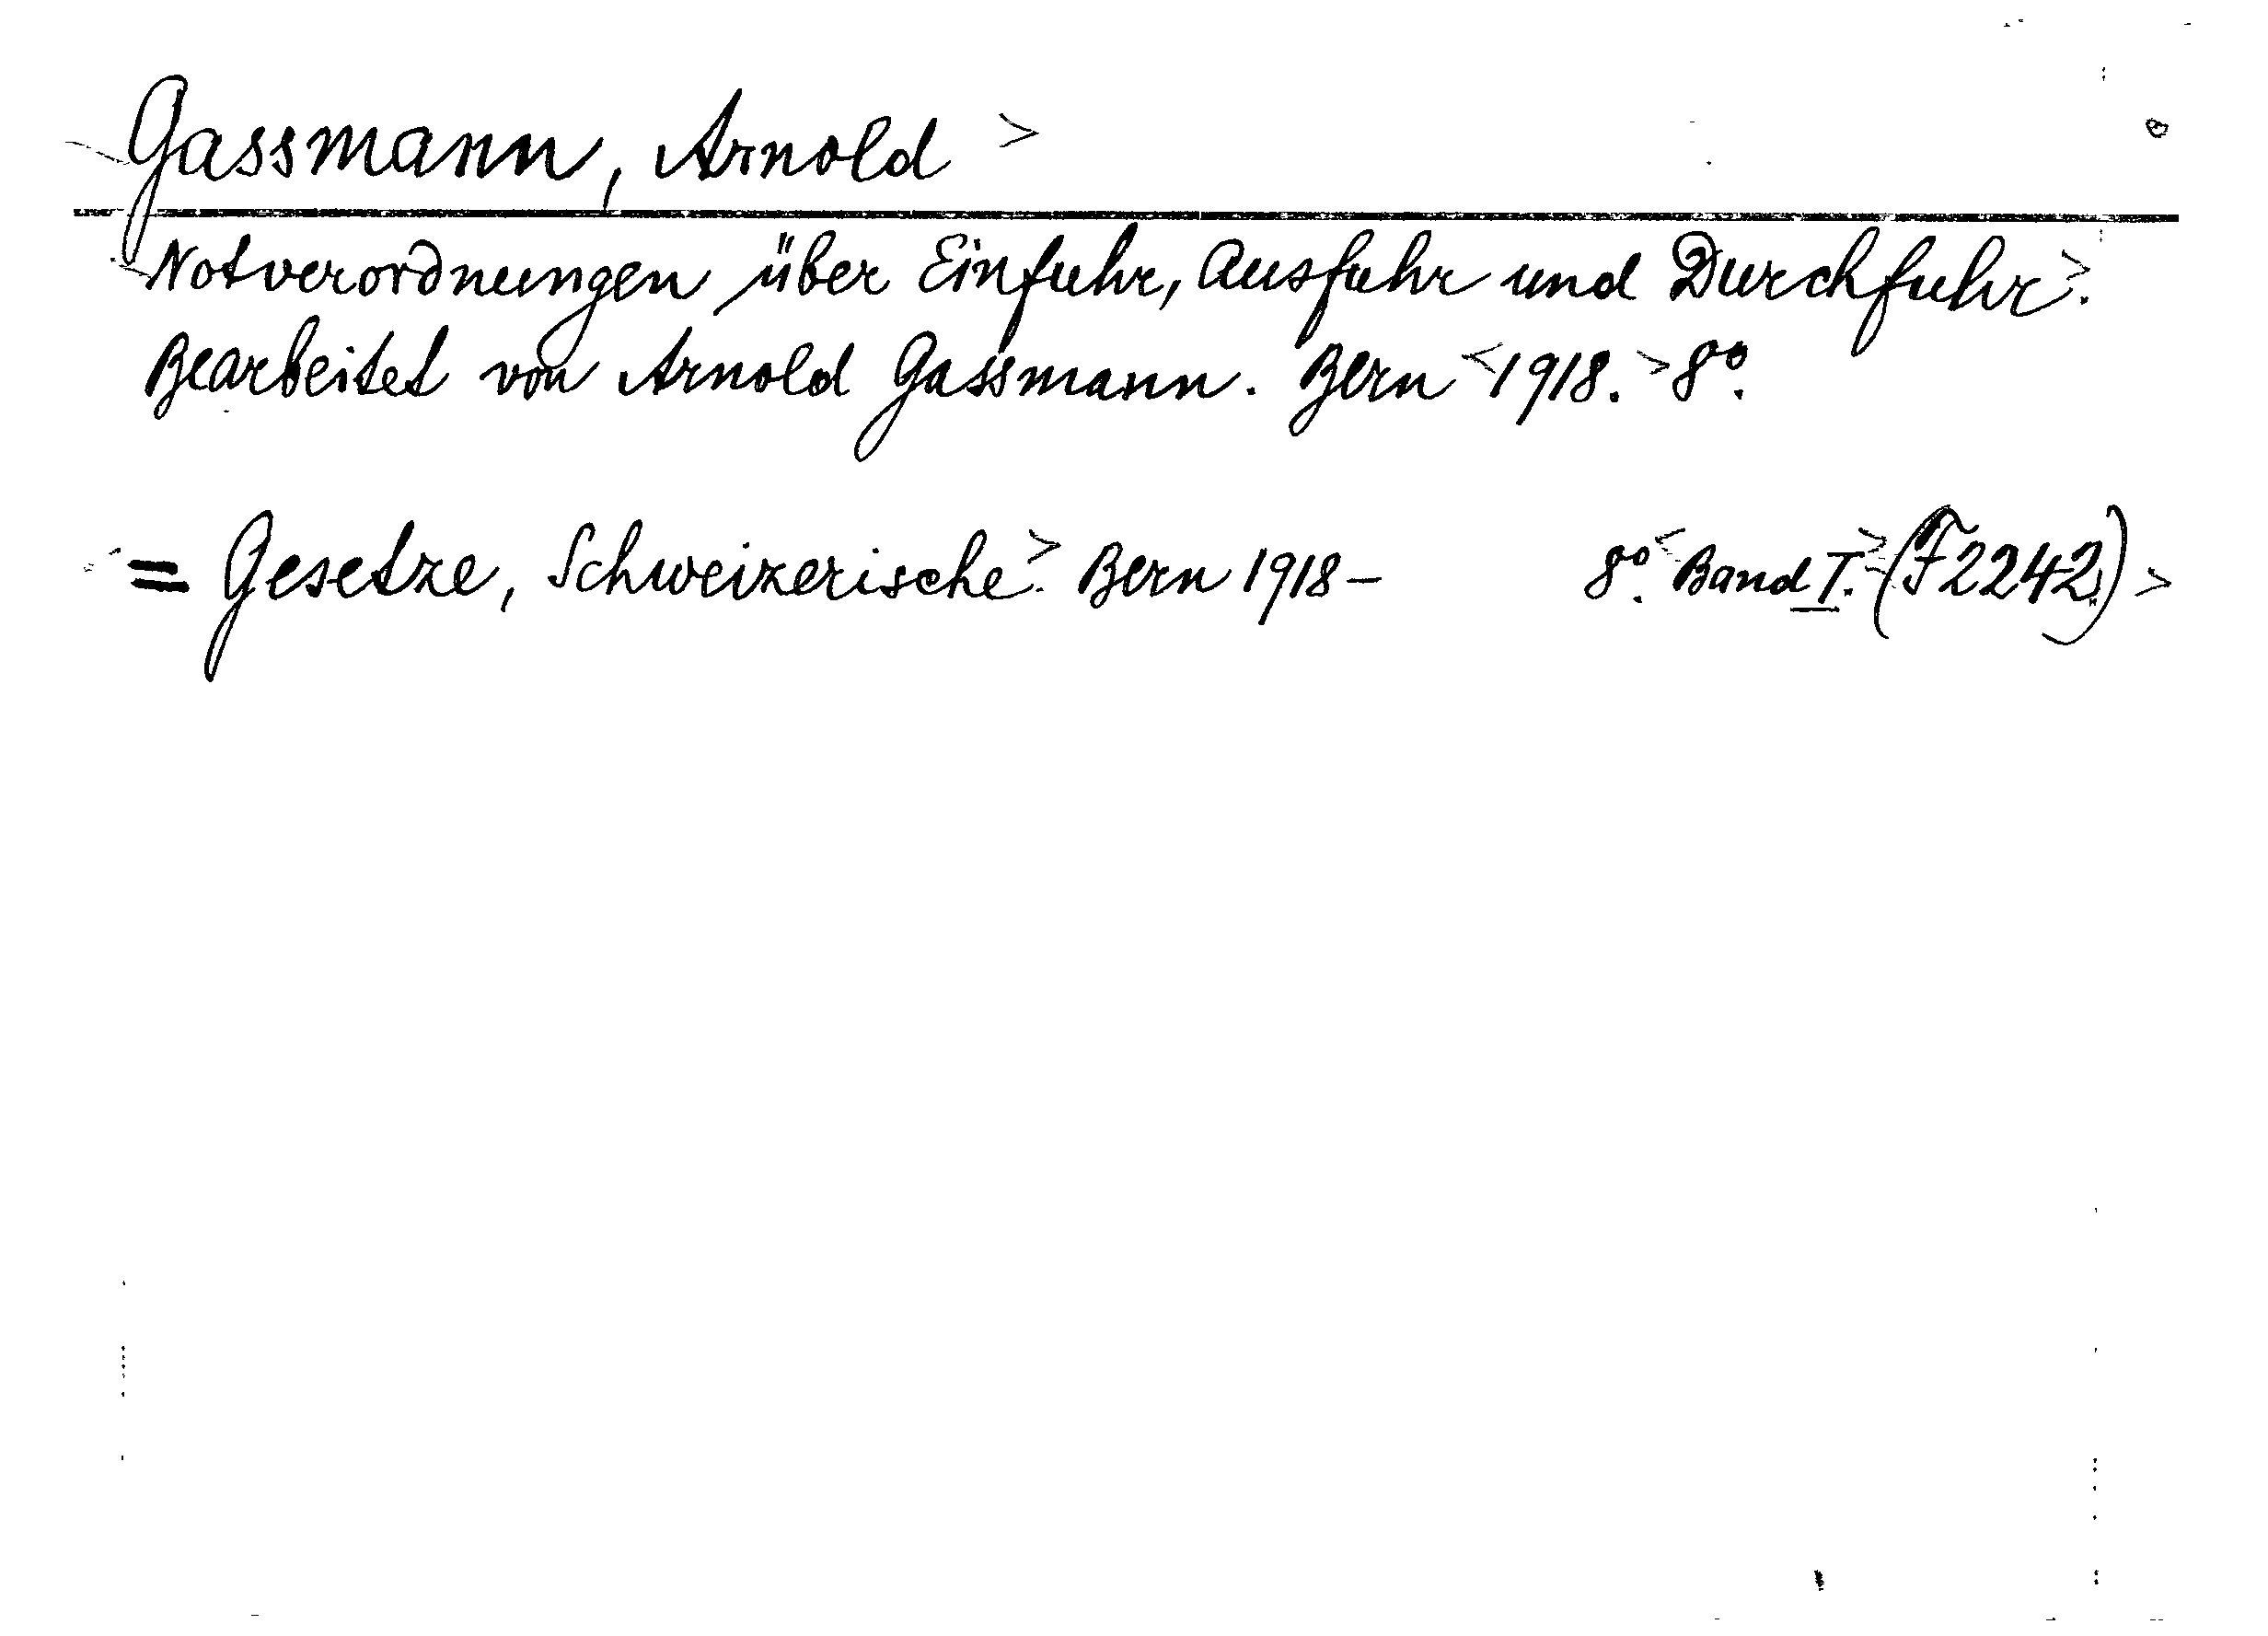 Gassmann, Arnold >
Notverordnungen über Einfuhr, Ausfuhr und Durchfuhr>.
Bearbeitet von Arnold Gassmann. Bern <1918.> 8°.
= Gesetze, Schweizerische>. Bern 1918– 8°.< Band I.> (F2242.) >